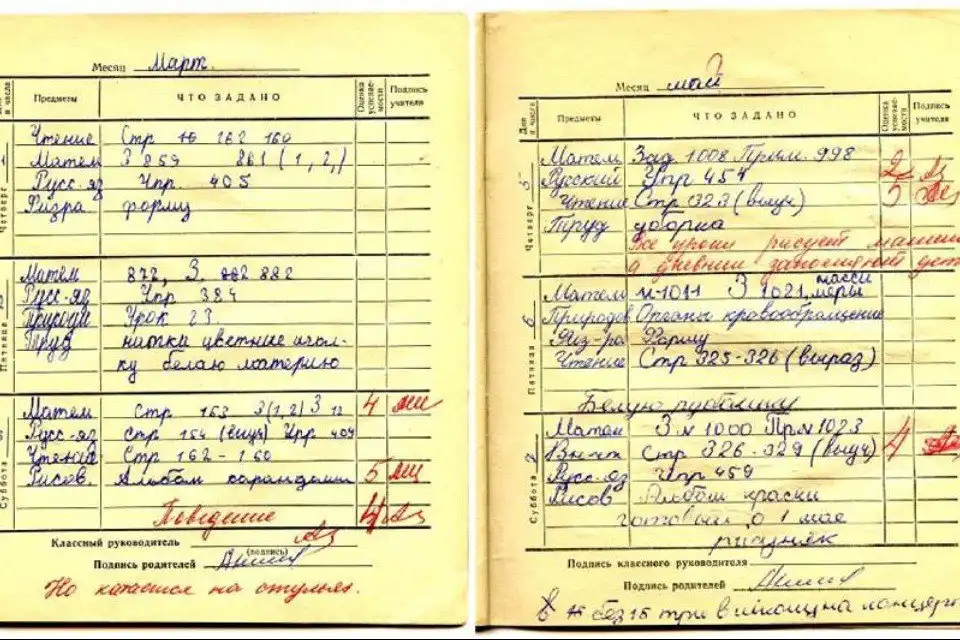 Месяц Март
Дни и числа Предметы ЧТО ЗАДАНО Оценка успеваемости Подпись учителя
Четверг 1
Чтение Стр 162 160
Матем З 859 861 (1, 2,)
Русс-яз Упр. 405
Физра форму
Пятница 2
Матем 872, З. 882
Русс-яз Упр 384
Природы Урок 23
Труд нитки цветные игол-
ку белаю материю
Суббота 3
Матем Стр 163 З(1,2) З 12 4
Русс-яз Стр 154 (выуч) Упр 404
Чтение Стр 162-160
Рисов. Альбом карандаши 5
Поведение 4
Классный руководитель
(подпись)
Подпись родителей
Но катался на стульях.
Месяц май
Дни и числа Предметы ЧТО ЗАДАНО Оценка успеваемости Подпись учителя
Четверг 5
Матем Зад 1008 Прим. 998 2
Русский Упр 454
Чтение Стр 323 (выуч)
Труд уборка
Все уроки рисует машин
а дневник заполняют дет
Пятница 6
Матем №1011 З 1021, массы меры
Природов Органы кровообращение
Физ-ра Форму
Чтение Стр 325-326 (выраз)
Белую рубашку
Суббота 7
Матем З № 1000 Пр № 1023
Вн-чт Стр 326-329 (выуч) 4
Русс-яз Упр 459
Рисов Альбом краски
готовый о 1 мае
рисунок
Подпись классного руководителя
Подпись родителей
без 15 три в школу на концерт